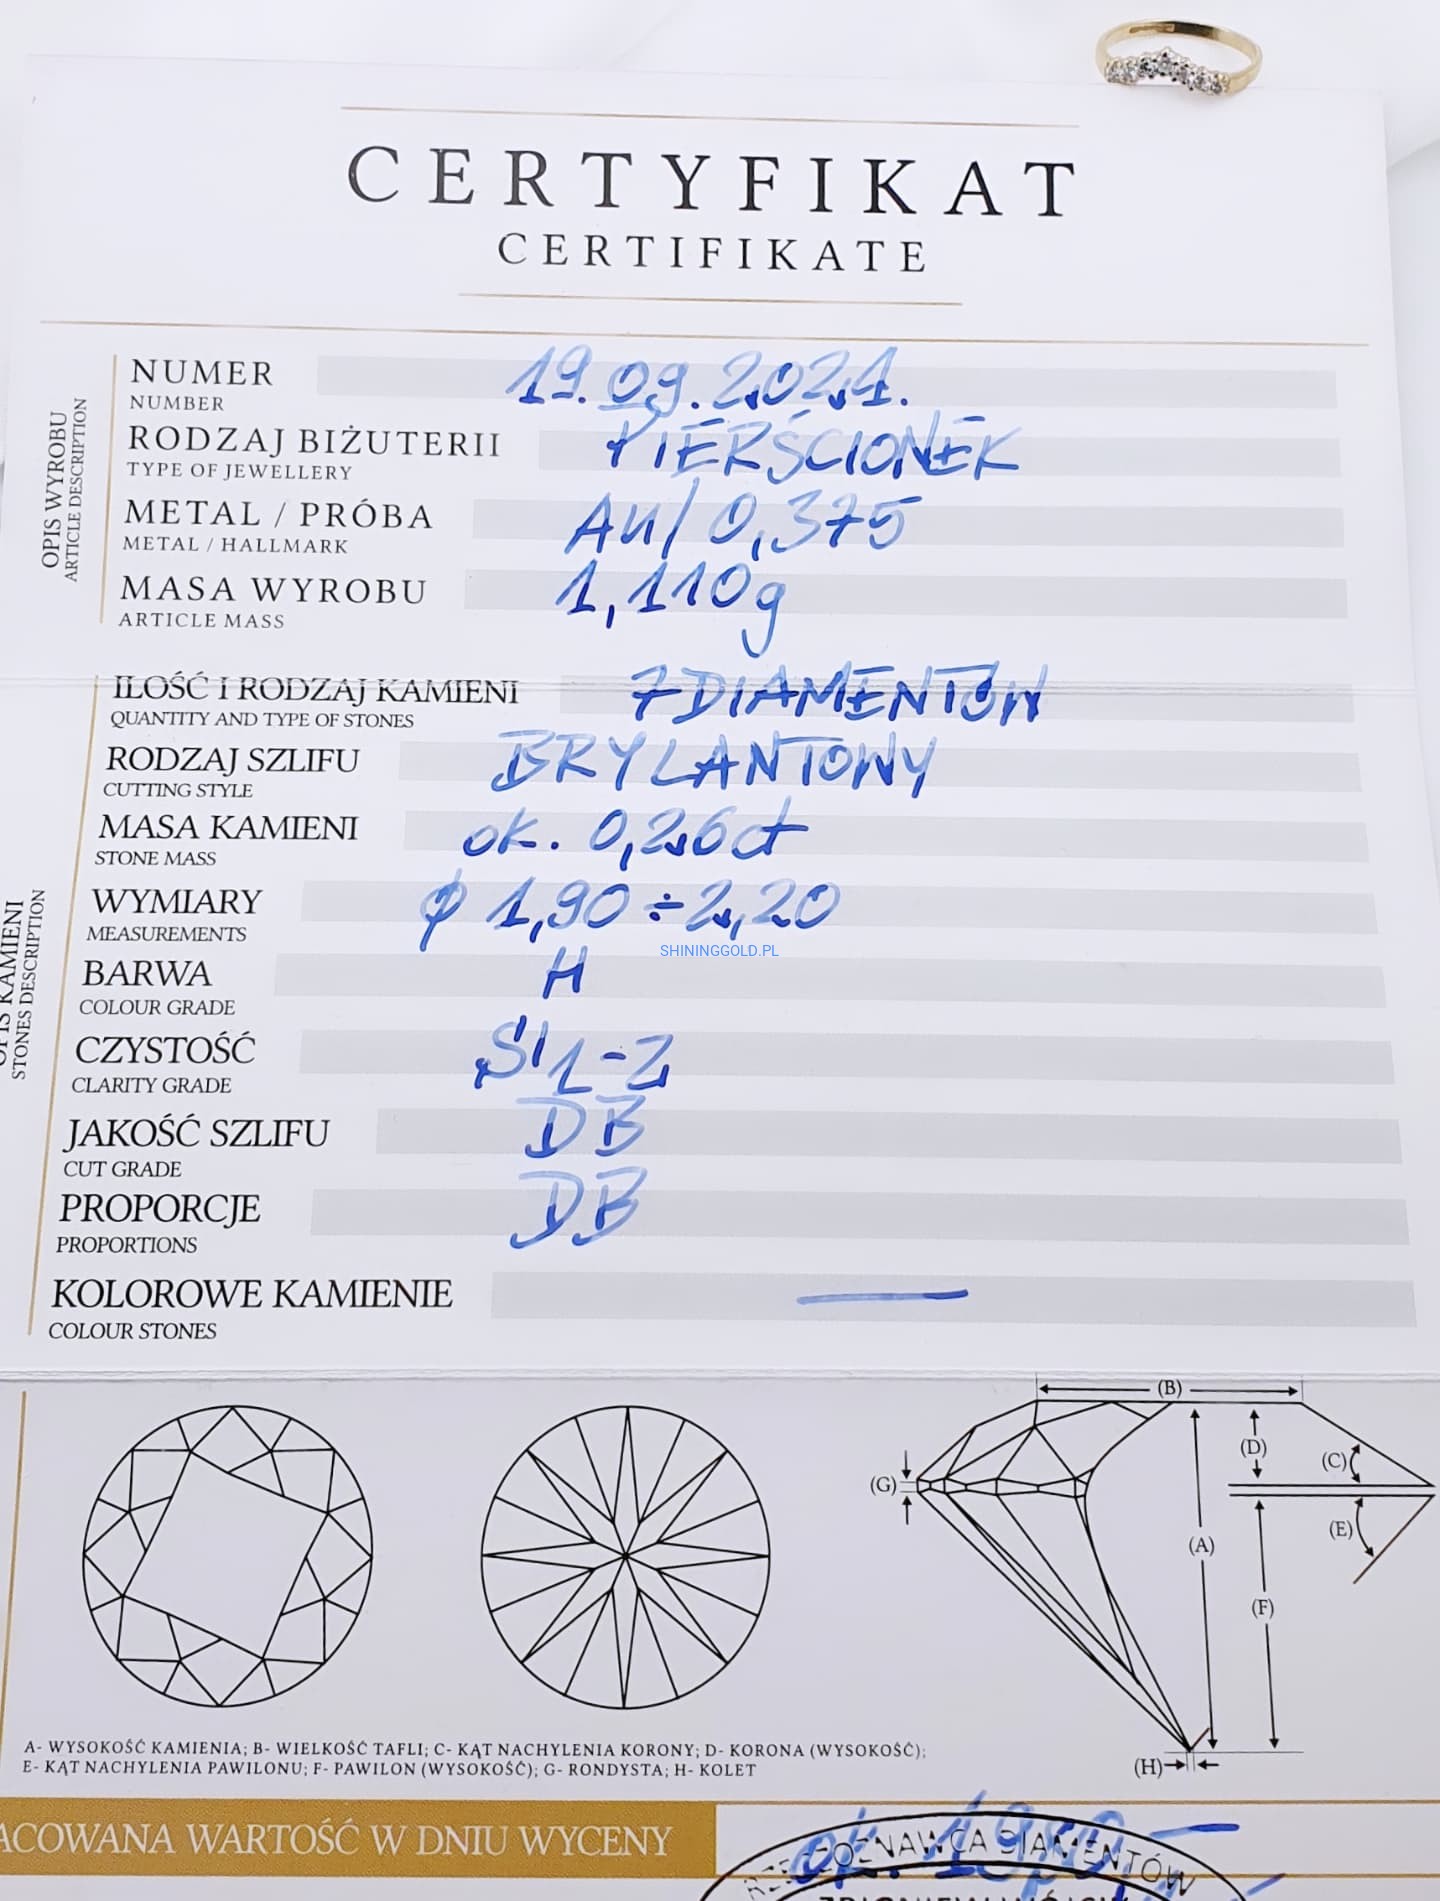 CERTYFIKAT
CERTIFIKATE
OPIS WYROBU
ARTICLE DESCRIPTION
NUMER 19.09.2024.
NUMBER
RODZAJ BIŻUTERII PIERŚCIONEK
TYPE OF JEWELLERY
METAL / PRÓBA Au/ 0,375
METAL / HALLMARK
MASA WYROBU 1,110g
ARTICLE MASS
KAMIENI
STONES DESCRIPTION
ILOŚĆ I RODZAJ KAMIENI 7 DIAMENTÓW
QUANTITY AND TYPE OF STONES
RODZAJ SZLIFU BRYLANTOWY
CUTTING STYLE
MASA KAMIENI ok. 0,26ct
STONE MASS
WYMIARY φ 1,90 ÷ 2,20
MEASUREMENTS
SHININGGOLD.PL
BARWA H
COLOUR GRADE
CZYSTOŚĆ SI1-2
CLARITY GRADE
JAKOŚĆ SZLIFU DB
CUT GRADE
PROPORCJE DB
PROPORTIONS
KOLOROWE KAMIENIE —
COLOUR STONES
(B)
(D)
(C)
(G)
(E)
(A)
(F)
(H)
A- WYSOKOŚĆ KAMIENIA; B- WIELKOŚĆ TAFLI; C- KĄT NACHYLENIA KORONY; D- KORONA (WYSOKOŚĆ);
E- KĄT NACHYLENIA PAWILONU; F- PAWILON (WYSOKOŚĆ); G- RONDYSTA; H- KOLET
ACOWANA WARTOŚĆ W DNIU WYCENY ok.
RZECZOZNAWCA DIAMENTÓW